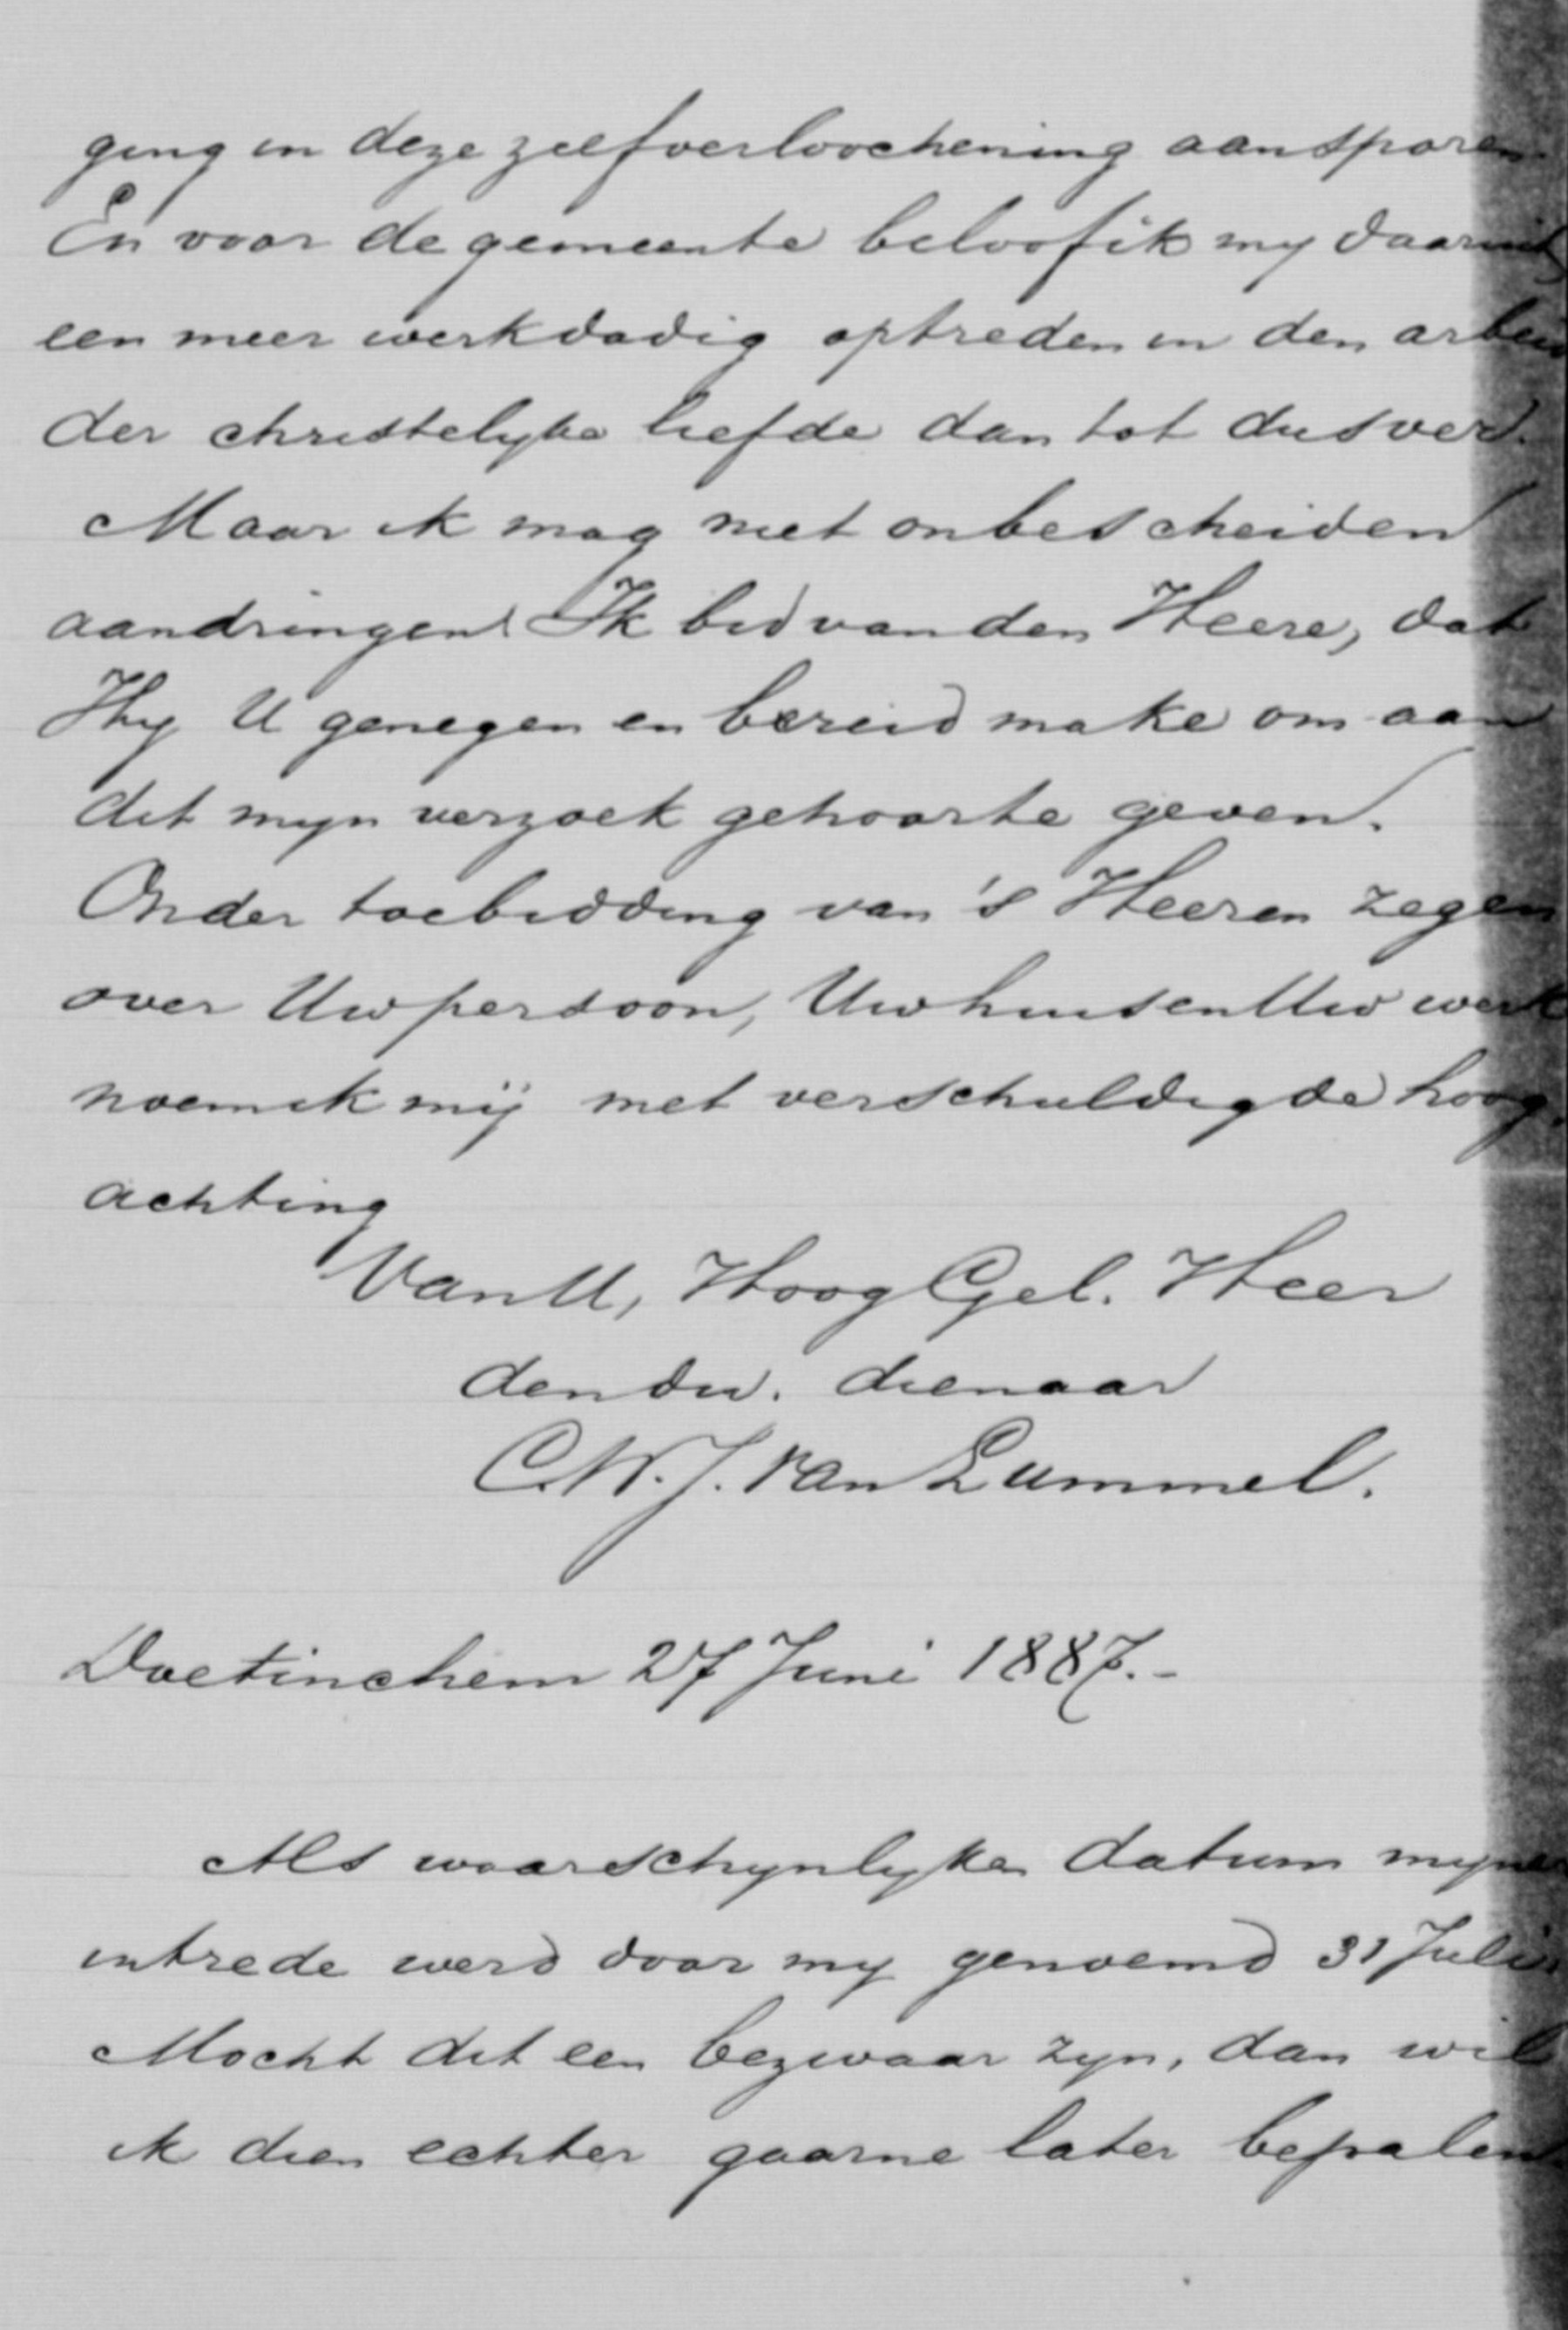 ging en deze zelfverloochening aansporen.
En voor de gemeente beloof ik my daaruit
een meer werkdadig optreden in den arbeid
der christelyke liefde dan tot dusver.
Maar ik mag niet onbescheiden
aandringen. Ik bid van den Heere, dat
Hy U genegen en bereid make om aan
dit myn verzoek gehoor te geven.
Onder toebidding van 's Heeren zegen
over Uw persoon, Uw huis en Uw werk
noem ik mij met verschuldigde hoog-
achting
Van U, HoogGel. Heer
den dw. dienaar
C.W.J. van Lummel.
Doetinchem 27 Juni 1887.-
Als waarschynlyken datum myner
intrede werd door my genoemd 31 Juli.
Mocht dit een bezwaar zyn, dan wil
ik dien echter gaarne later bepalen